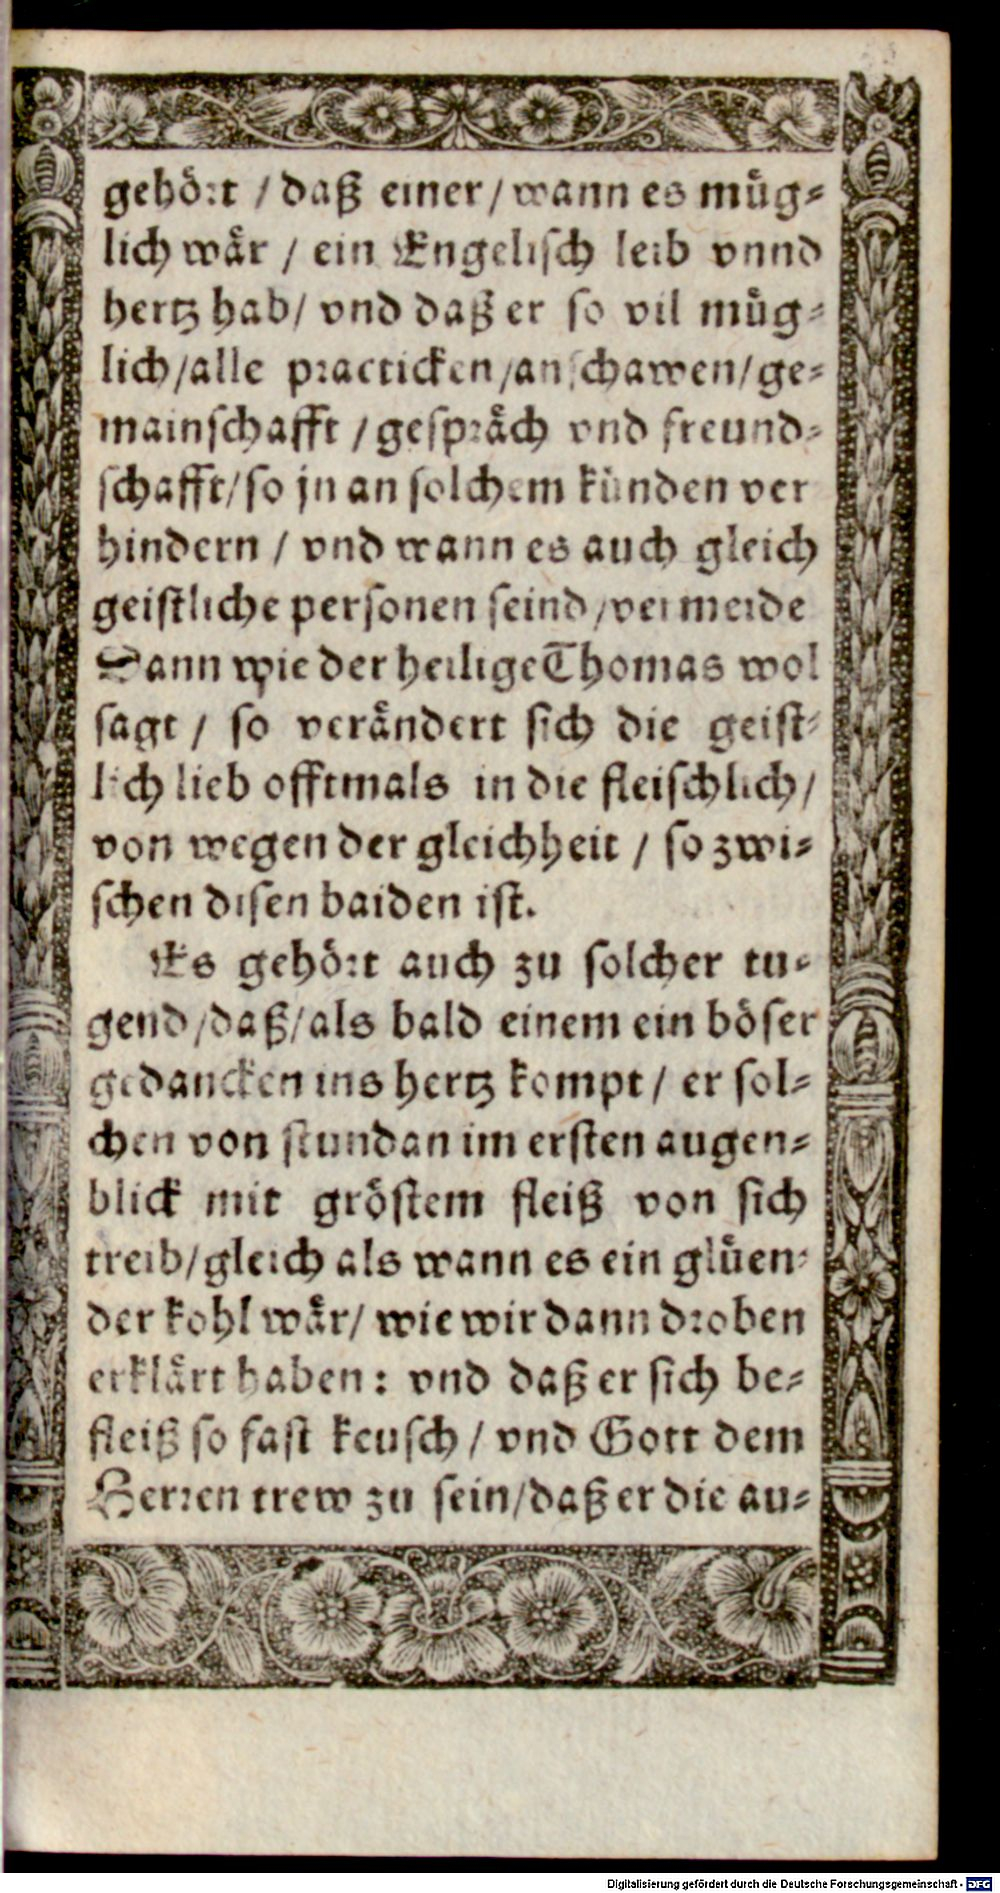 gehört / daß einer / wann es müg⸗
lich wär / ein Engelisch leib vnnd
hertz hab / vnd daß er so vil müg⸗
lich / alle practicken / anschawen / ge⸗
mainschafft / gespräch vnd freund⸗
schafft / so jn an solchem künden ver
hindern / vnd wann es auch gleich
geistliche personen seind / vermeide
Dann wie der heilige Thomas wol
sagt / so verändert sich die geist⸗
lich lieb offtmals in die fleischlich /
von wegen der gleichheit / so zwi⸗
schen disen baiden ist.
Es gehört auch zu solcher tu⸗
gend / daß / als bald einem ein böser
gedancken ins hertz kompt / er sol⸗
chen von stundan im ersten augen⸗
blick mit gröstem fleiß von sich
treib / gleich als wann es ein glüen⸗
der kohl wär / wie wir dann droben
erklärt haben : vnd daß er sich be⸗
fleiß so fast keusch / vnd Gott dem
Herren trew zu sein / daß er die au⸗
Digitalisierung gefördert durch die Deutsche Forschungsgemeinschaft - DFG